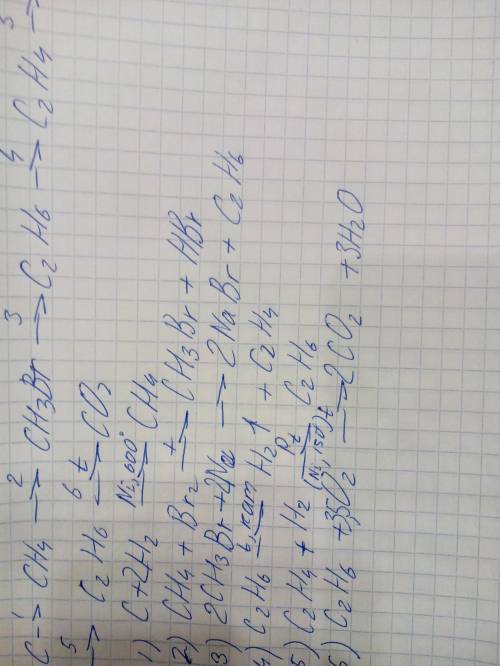 C →¹ CH4 →² CH3Br →³ C2H6 →⁴ C2H4 →⁵
→⁵ C2H6 →⁶ᵗ CO2
1) C+2H2 →(Ni, 600°) CH4
2) CH4 + Br2 →(t) CH3Br + HBr
3) 2CH3Br + 2Na → 2NaBr + C2H6
4) C2H6 →(t, кат) H2↑ + C2H4
5) C2H4 + H2 →(Pt (Ni, 150°)) C2H6
6) C2H6 + 3,5O2 →(t) 2CO2 + 3H2O